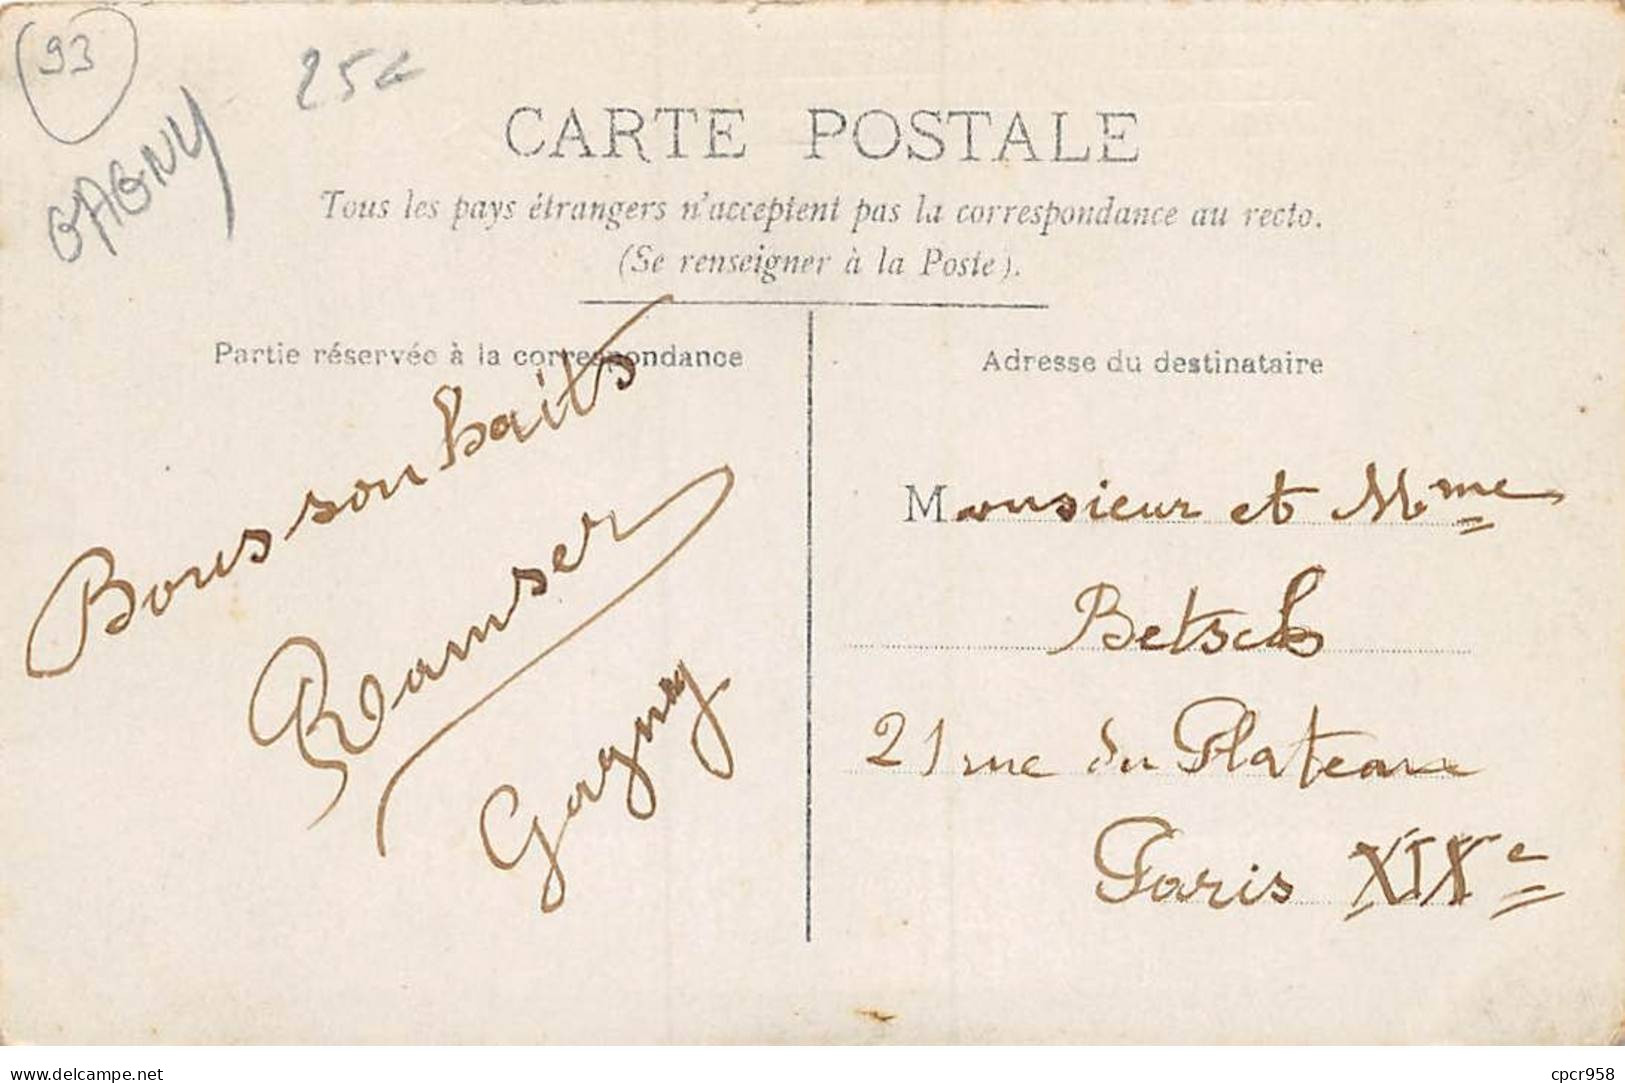 93
GAGNY
25€
CARTE POSTALE
Tous les pays étrangers n'acceptent pas la correspondance au recto.
(Se renseigner à la Poste).
Partie réservée à la correspondance
Bons souhaits
Ramser
Gagny
Adresse du destinataire
Monsieur et Mme
Betsch
21 rue du Plateau
Paris XIXe
www.delcampe.net
cpcr958